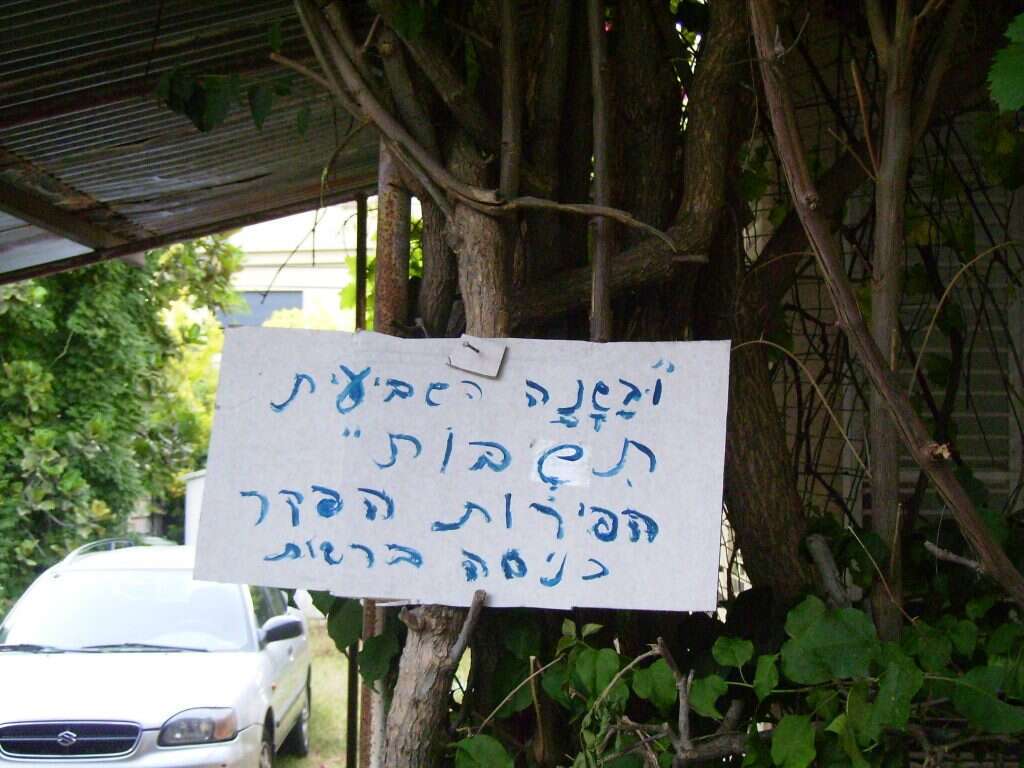 "וּבַשָׁנָה השביעית
תִשָבות"
הפירות הפקר
כניסה ברשות